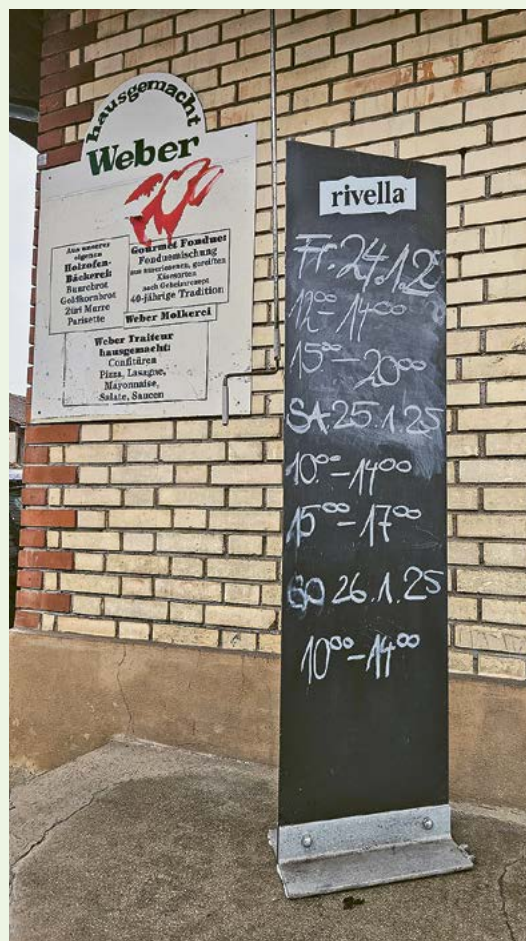 hausgemacht
Weber
Aus unserer
eigenen
Holzofen-
Bäckerei:
Burebrot
Goldkornbrot
Züri Murre
Parisette
Gourmet Fondue:
Fonduemischung
aus auserlesenen, gereiften
Käsesorten
nach Geheimrezept
40-jährige Tradition
Weber Molkerei
Weber Traiteur
hausgemacht:
Confitüren
Pizza, Lasagne,
Mayonnaise,
Salate, Saucen
rivella
Fr. 24.1.25
12⁰⁰-14⁰⁰
15⁰⁰-20⁰⁰
SA 25.1.25
10⁰⁰-14⁰⁰
15⁰⁰-17⁰⁰
SO 26.1.25
10⁰⁰-14⁰⁰